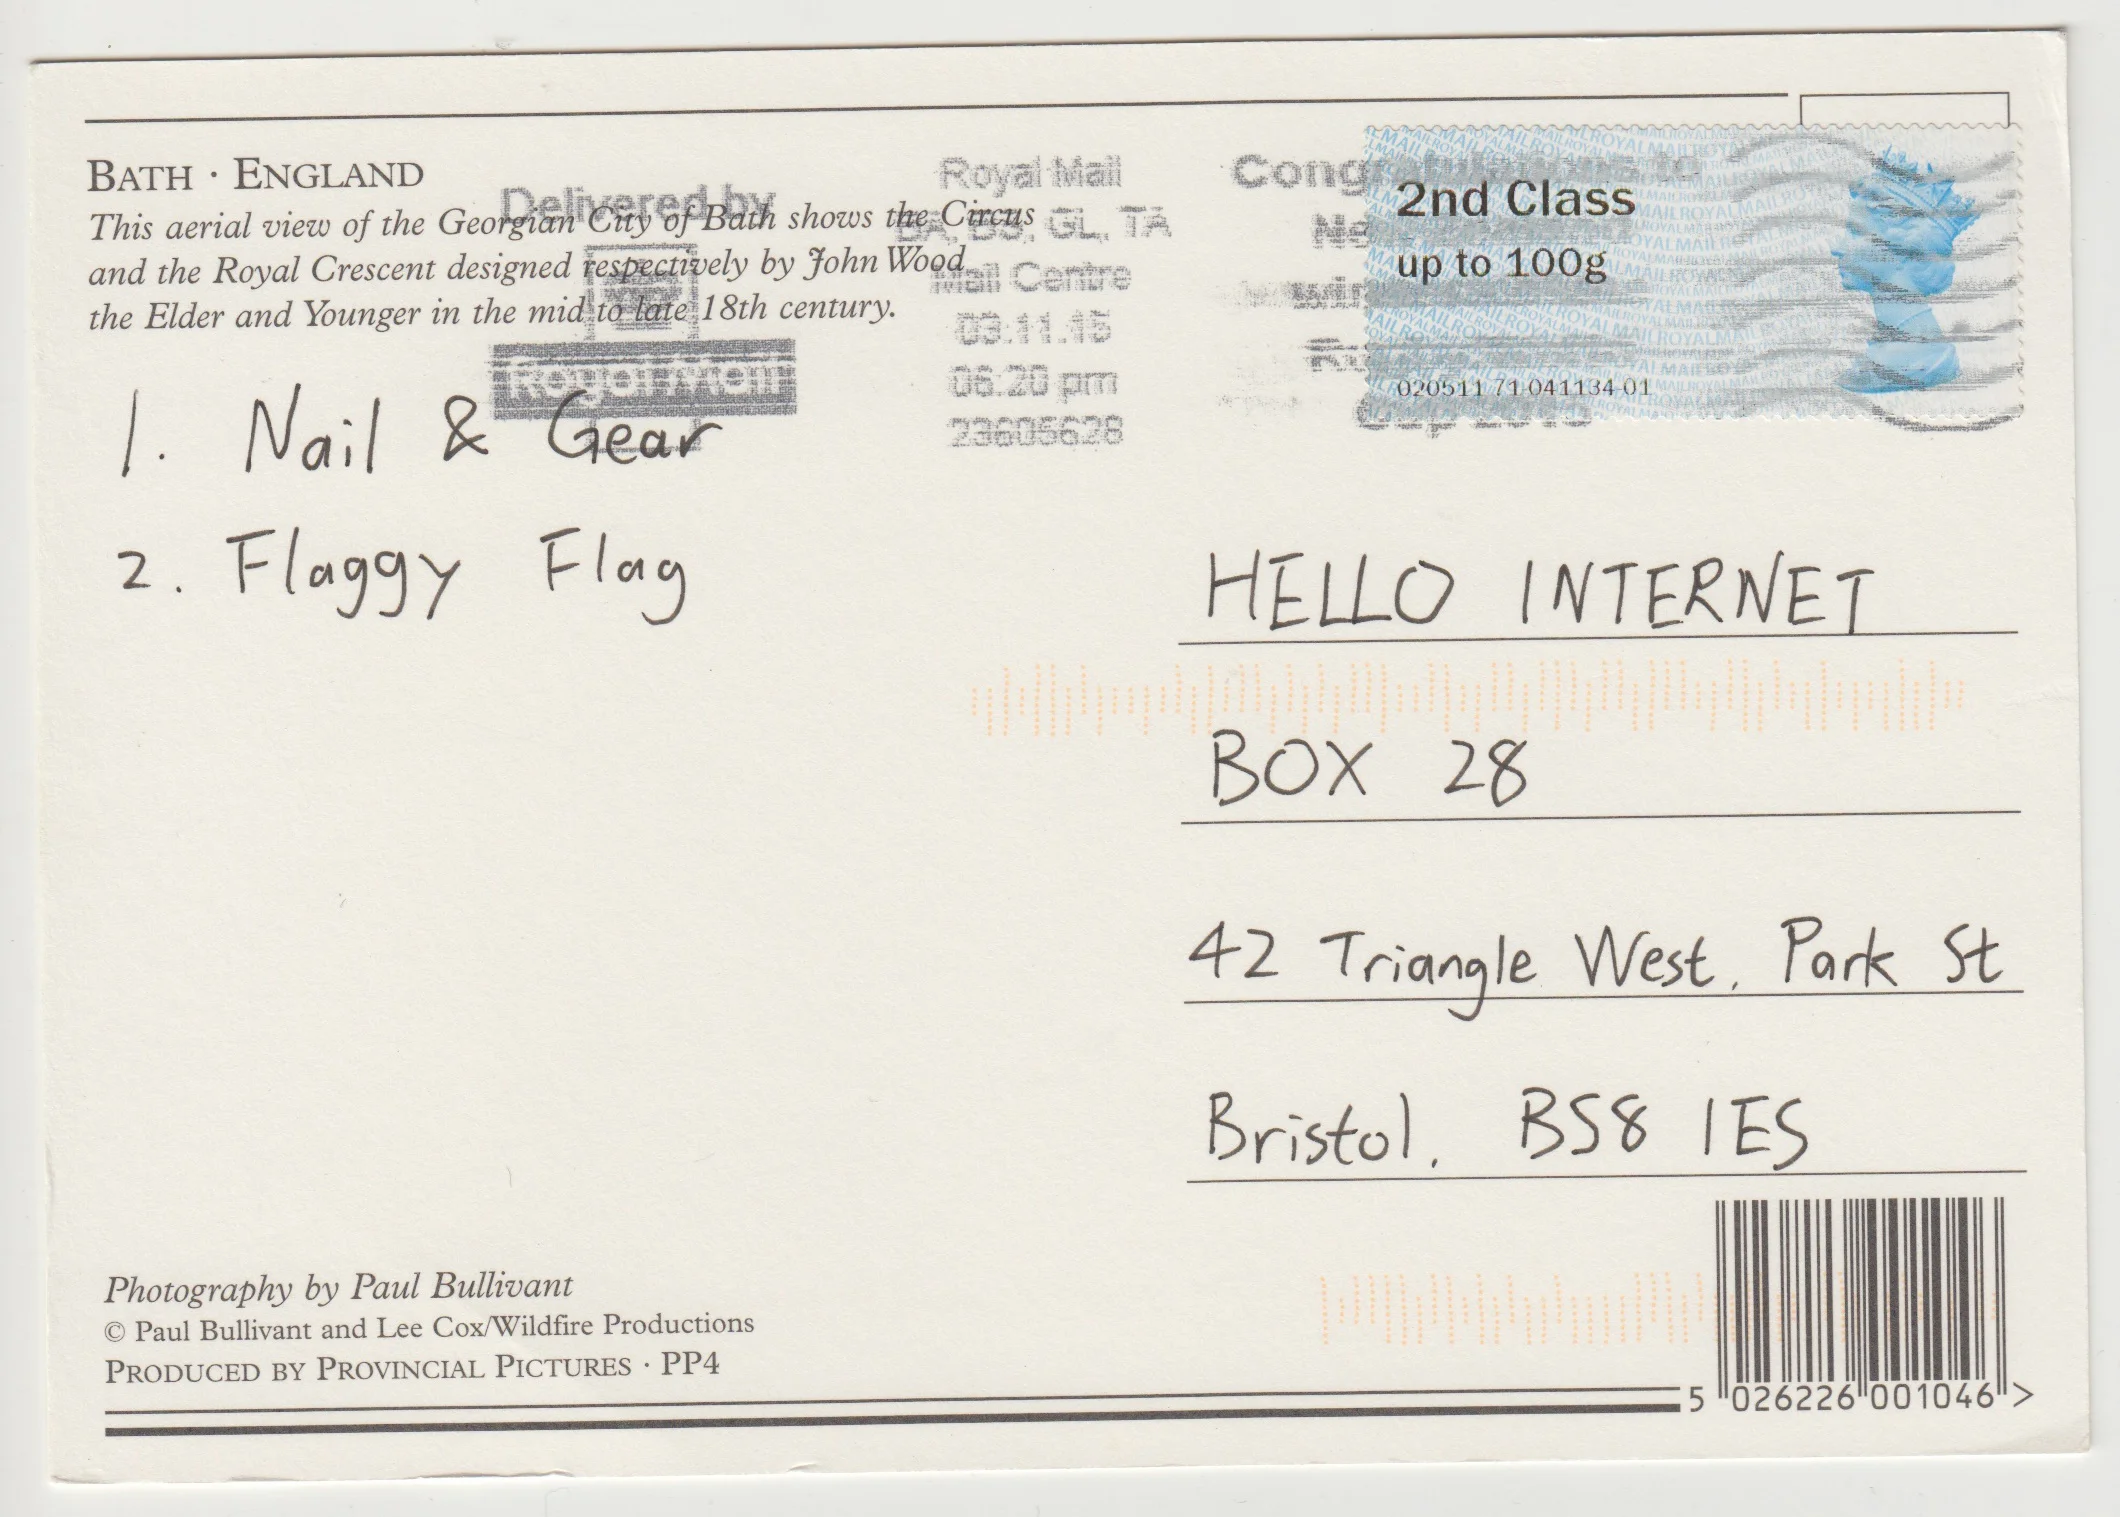 BATH · ENGLAND
This aerial view of the Georgian City of Bath shows the Circus
and the Royal Crescent designed respectively by John Wood
the Elder and Younger in the mid to late 18th century.
Delivered by
Royal Mail
Royal Mail
GL, TA
Mail Centre
03.11.15
06:20 pm
23605628
Congratulations to
2nd Class
up to 100g
020511 71-041134-01
Cup 2015
1. Nail & Gear
2. Flaggy Flag
HELLO INTERNET
BOX 28
42 Triangle West, Park St
Bristol, BS8 1ES
Photography by Paul Bullivant
© Paul Bullivant and Lee Cox/Wildfire Productions
PRODUCED BY PROVINCIAL PICTURES · PP4
5 026226 001046 >